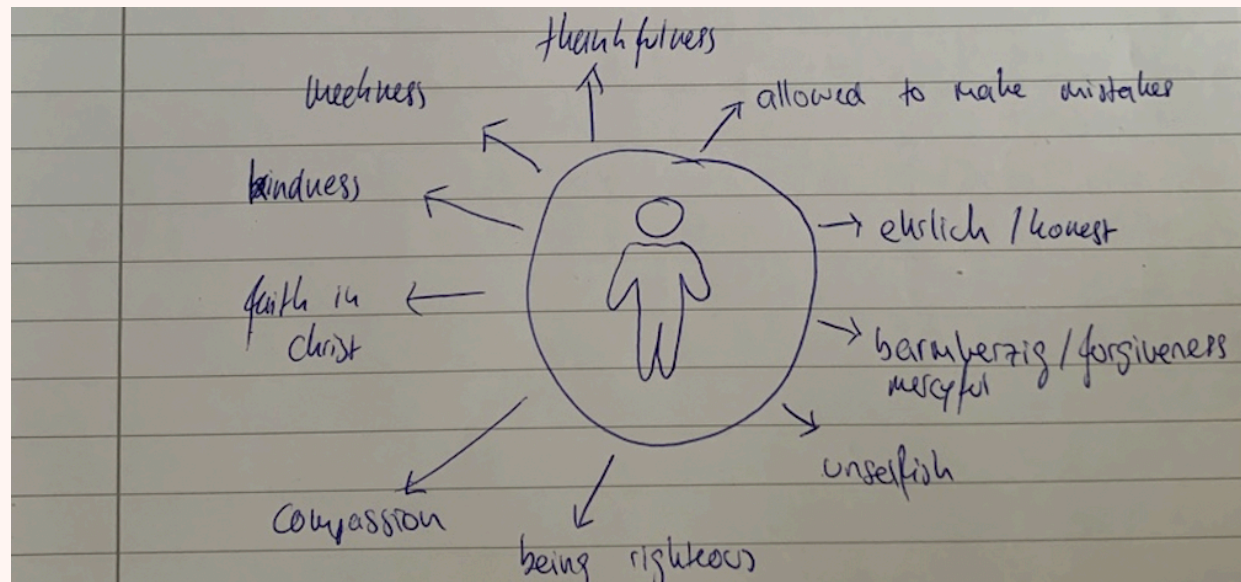 thankfulness
meekness
allowed to make mistakes
kindness
ehrlich / honest
faith in
christ
barmherzig / forgiveness
mercyful
unselfish
compassion
being righteous